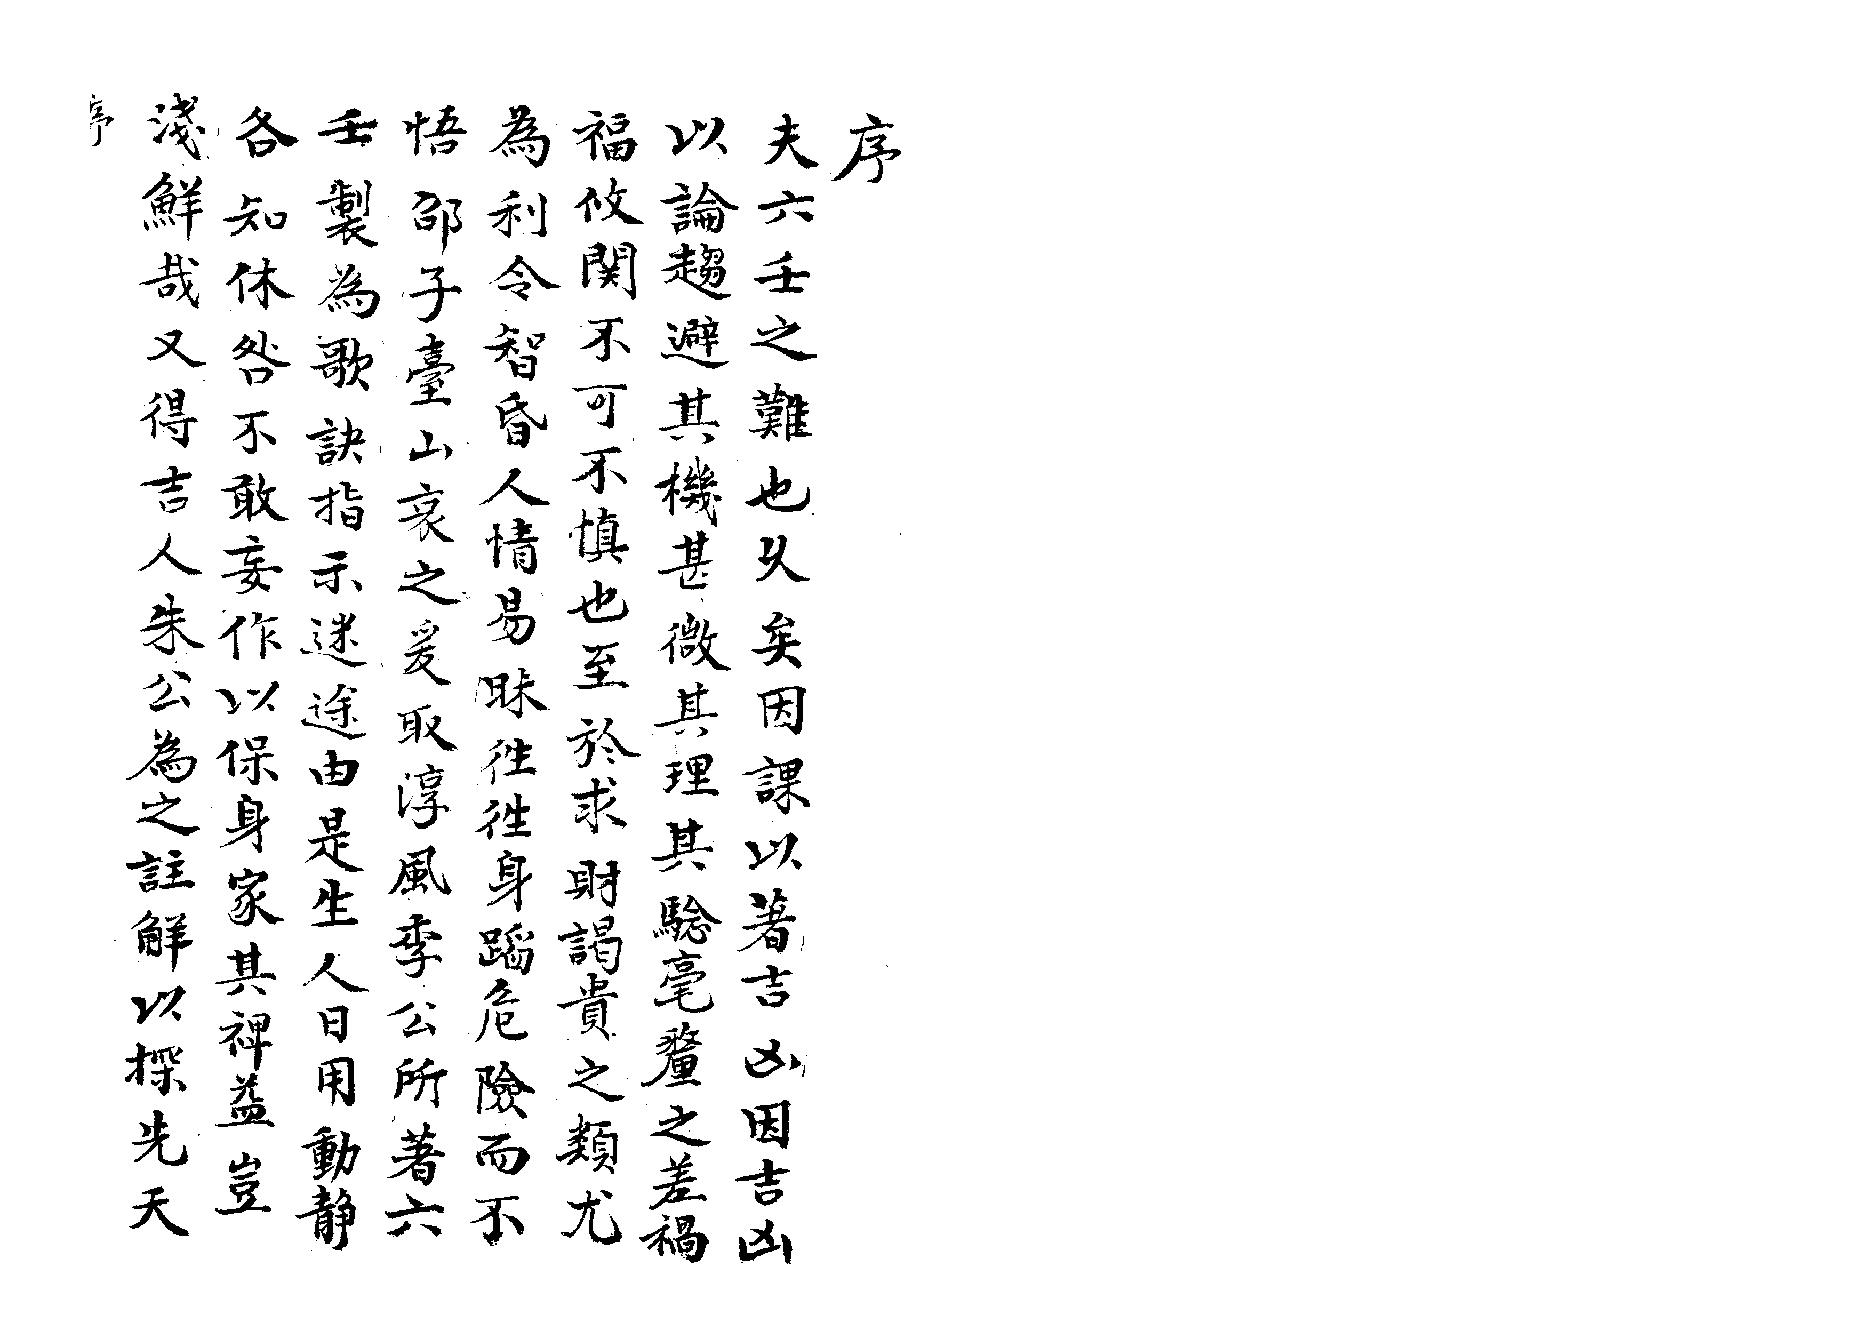 序
夫六壬之難也久矣因課以著吉凶因吉凶
以論趨避其機甚微其理其驗毫釐之差禍
福攸関不可不慎也至於求財謁貴之類尤
為利令智昏人情易昧徃徃身蹈危險而不
悟邵子臺山哀之爰取淳風李公所著六
壬製為歌訣指示迷途由是生人日用動静
各知休咎不敢妄作以保身家其裨益豈
淺鮮哉又得吉人朱公為之註解以探先天
序